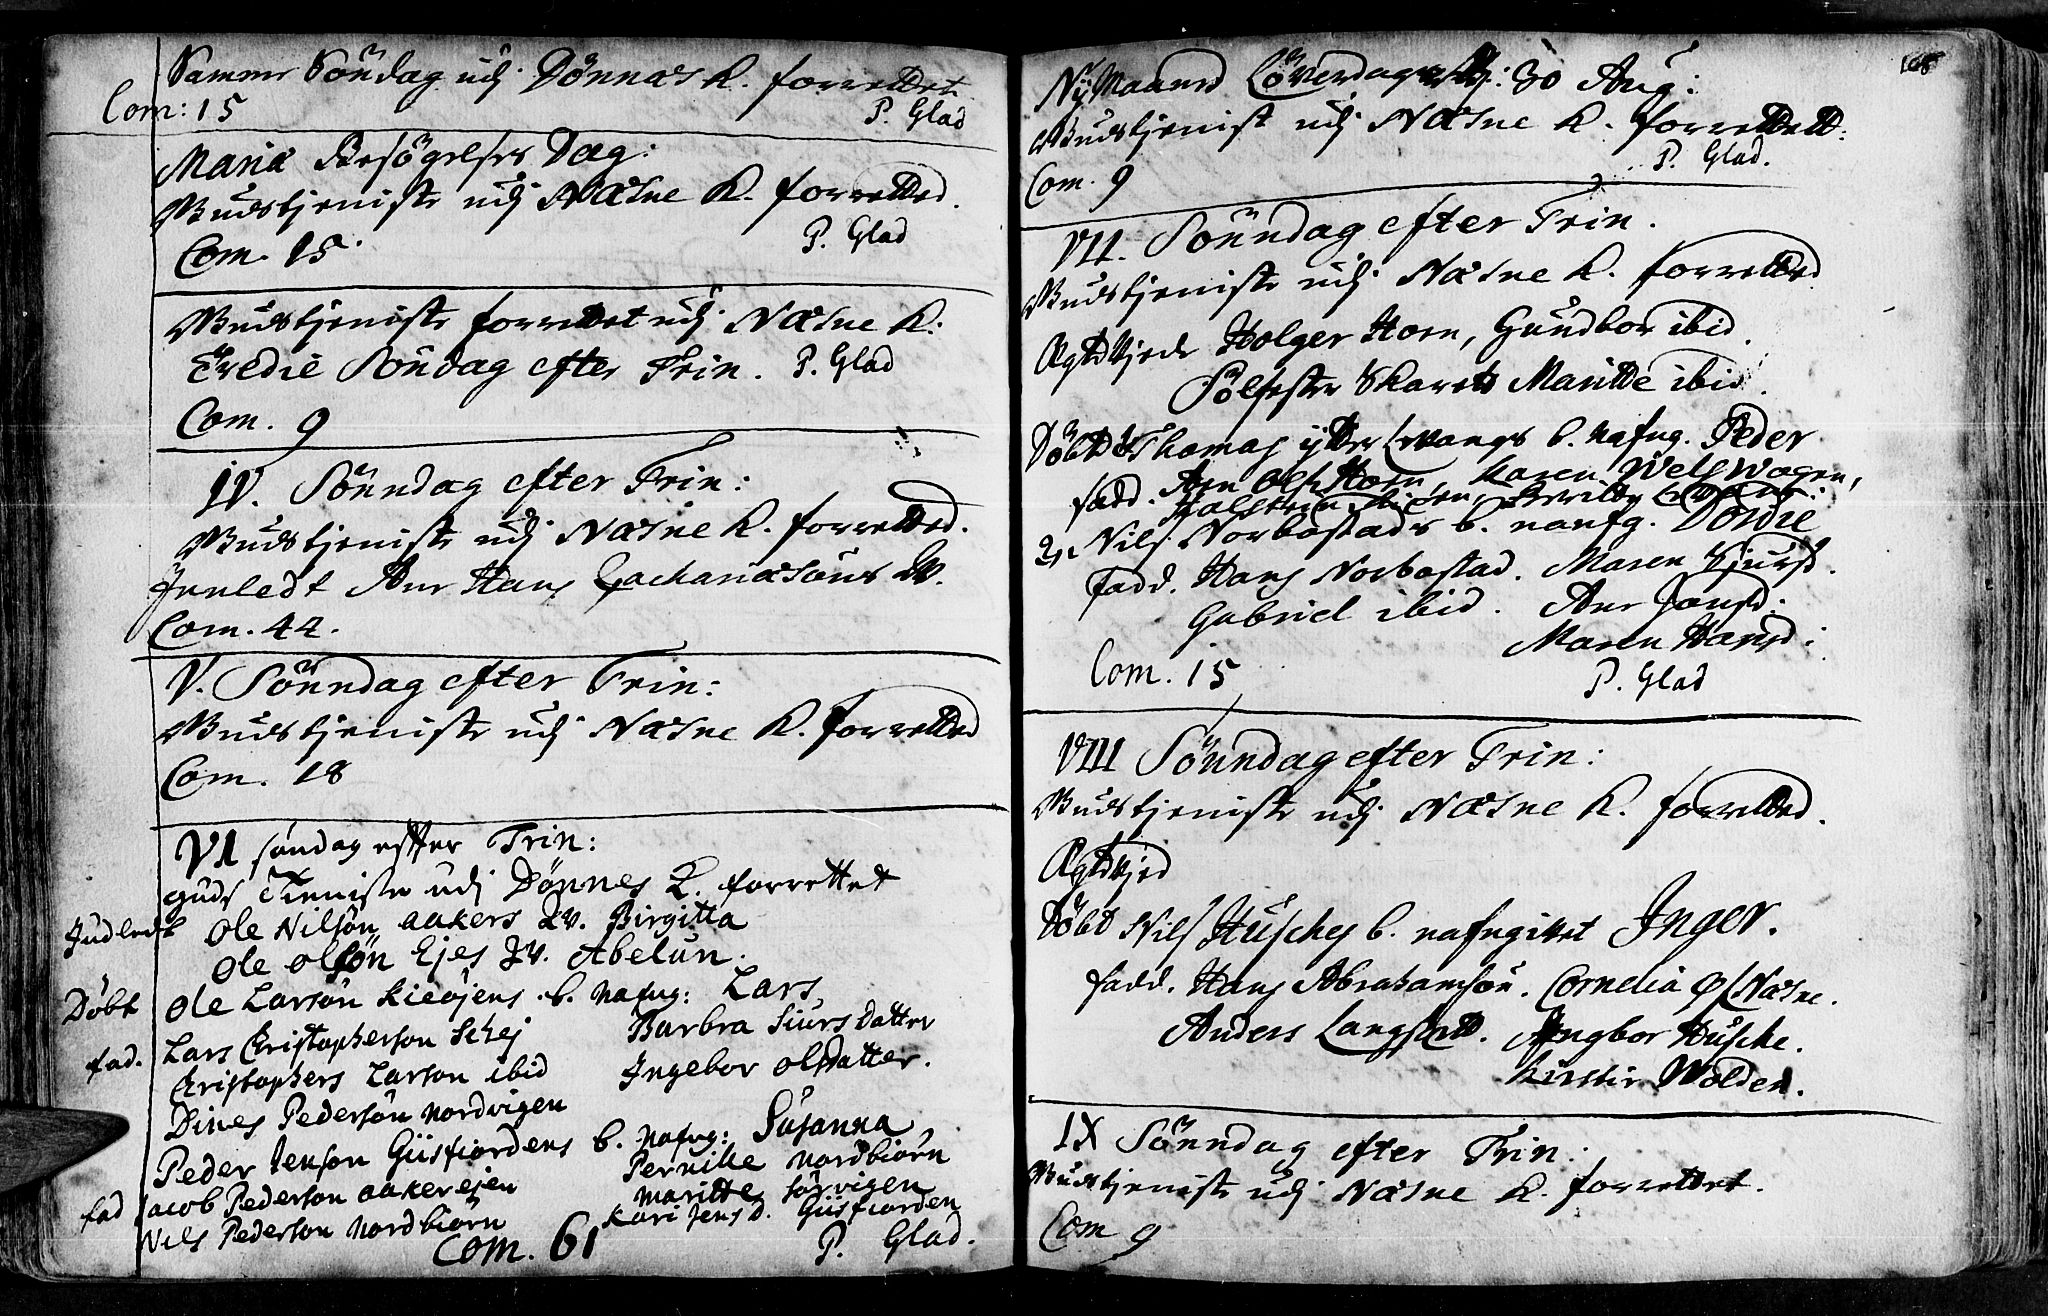 Samme Söndag udj Dönnæs K. forrettet
Com: 15 P. Glad
Mariæ Besögelses Dag:
Gudstjeniste udj Næsne K. forretted.
Com. 15. P. Glad
Gudstjeniste forrettet udj Næsne K:
Tredie Söndag efter Trin. P. Glad
Com. 9
IV. Sönndag efter Trin:
Gudstjeniste udj Næsne K. forretted.
Jnnledt Ane Hans Zachariæsöns W.
Com. 44.
V. Sönndag efter Trin:
Gudstjeniste udj Næsne K. forretted
Com. 18
VI söndag effter Trin:
guds Tieniste udj Dönnes K. forrettet
Jndledt Ole Nilsön aakers Qv. Birgitta
Ole olsön Ejes Qv. Abelun.
Döbt Ole Larsön Kieöjens b. Nafng: Lars
fad. Lars Christopherson Schej Barbra Siurs Datter
Christophers Larson ibid Jngebor olsdatter.
Dines Pedersön Nordvigen
Peder Jenson Giisfiordens b. nafng: Susanna
fad Jacob Pederson aakerejen Pernille Nordbiörn
Nils Pederson Nordbiörn Maritte Sörvigen
Kari Jens D. Giisfiorden
Com. 61 P. Glad.
168
Ny Maaned Löverdagen 30 Aug:
Gudstjenist udj Næsne K. forrettett.
Com. 9 P. Glad.
VII. Sönndag efter Trin.
Gudstjeniste udj Næsne K. forretted
Ægtvjede Holger Horn, Gundbor ibid.
Sölfester Skarets Maritte ibid.
Döbt Thomas ytter b. nafng. Peder
fadd. Horn, Karen
2, Nils Norbostads b. nanfg. Dordie
fadd. Hans Norbostad. Maren Sjursd.
Gabriel ibid. Ane Jonsd:
Maren Hansd:
Com. 15 P. Glad
VIII Sönndag efter Trin:
Gudstjeniste udj Næsne K. forretted.
Ægtvjed
Döbt Nils Huschej b. nafngivet Jnger.
fadd. Hans Abrahamsön. Cornelia Næsne.
Anders Langset. Jngbor Husche.
Kirstin Wolden.
IX Sönndag efter Trin:
Gudstjeniste udj Næsne K. forrettet.
Com 9